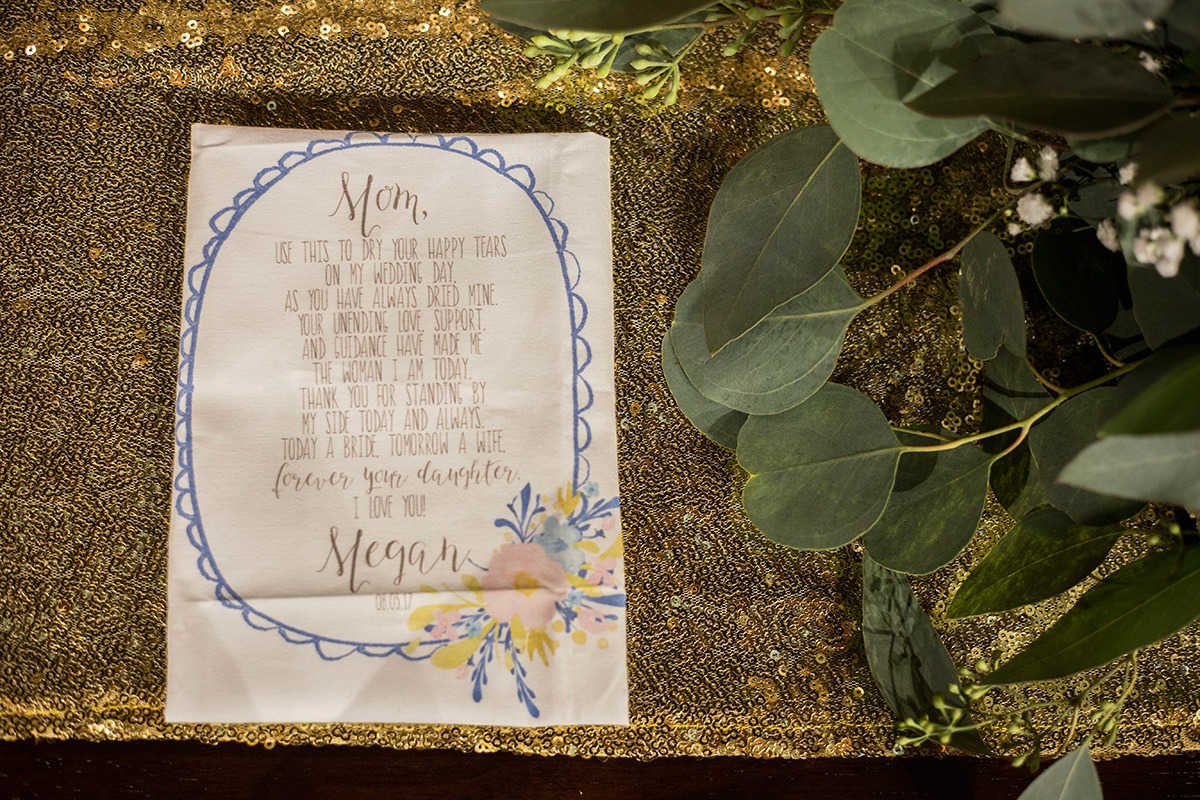 Mom,
USE THIS TO DRY YOUR HAPPY TEARS
ON MY WEDDING DAY,
AS YOU HAVE ALWAYS DRIED MINE.
YOUR UNENDING LOVE, SUPPORT,
AND GUIDANCE HAVE MADE ME
THE WOMAN I AM TODAY.
THANK YOU FOR STANDING BY
MY SIDE TODAY AND ALWAYS.
TODAY A BRIDE, TOMORROW A WIFE,
forever your daughter.
I LOVE YOU!
Megan